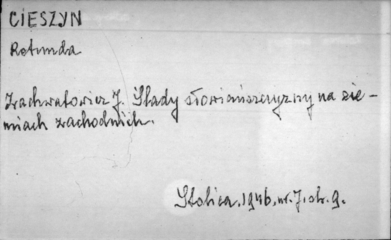 CIESZYN
Rotunda
Zachwatowicz J. Ślady słowiańszczyzny na zie-
miach zachodnich.
Stolica, 1946, nr. 7, str. 9.